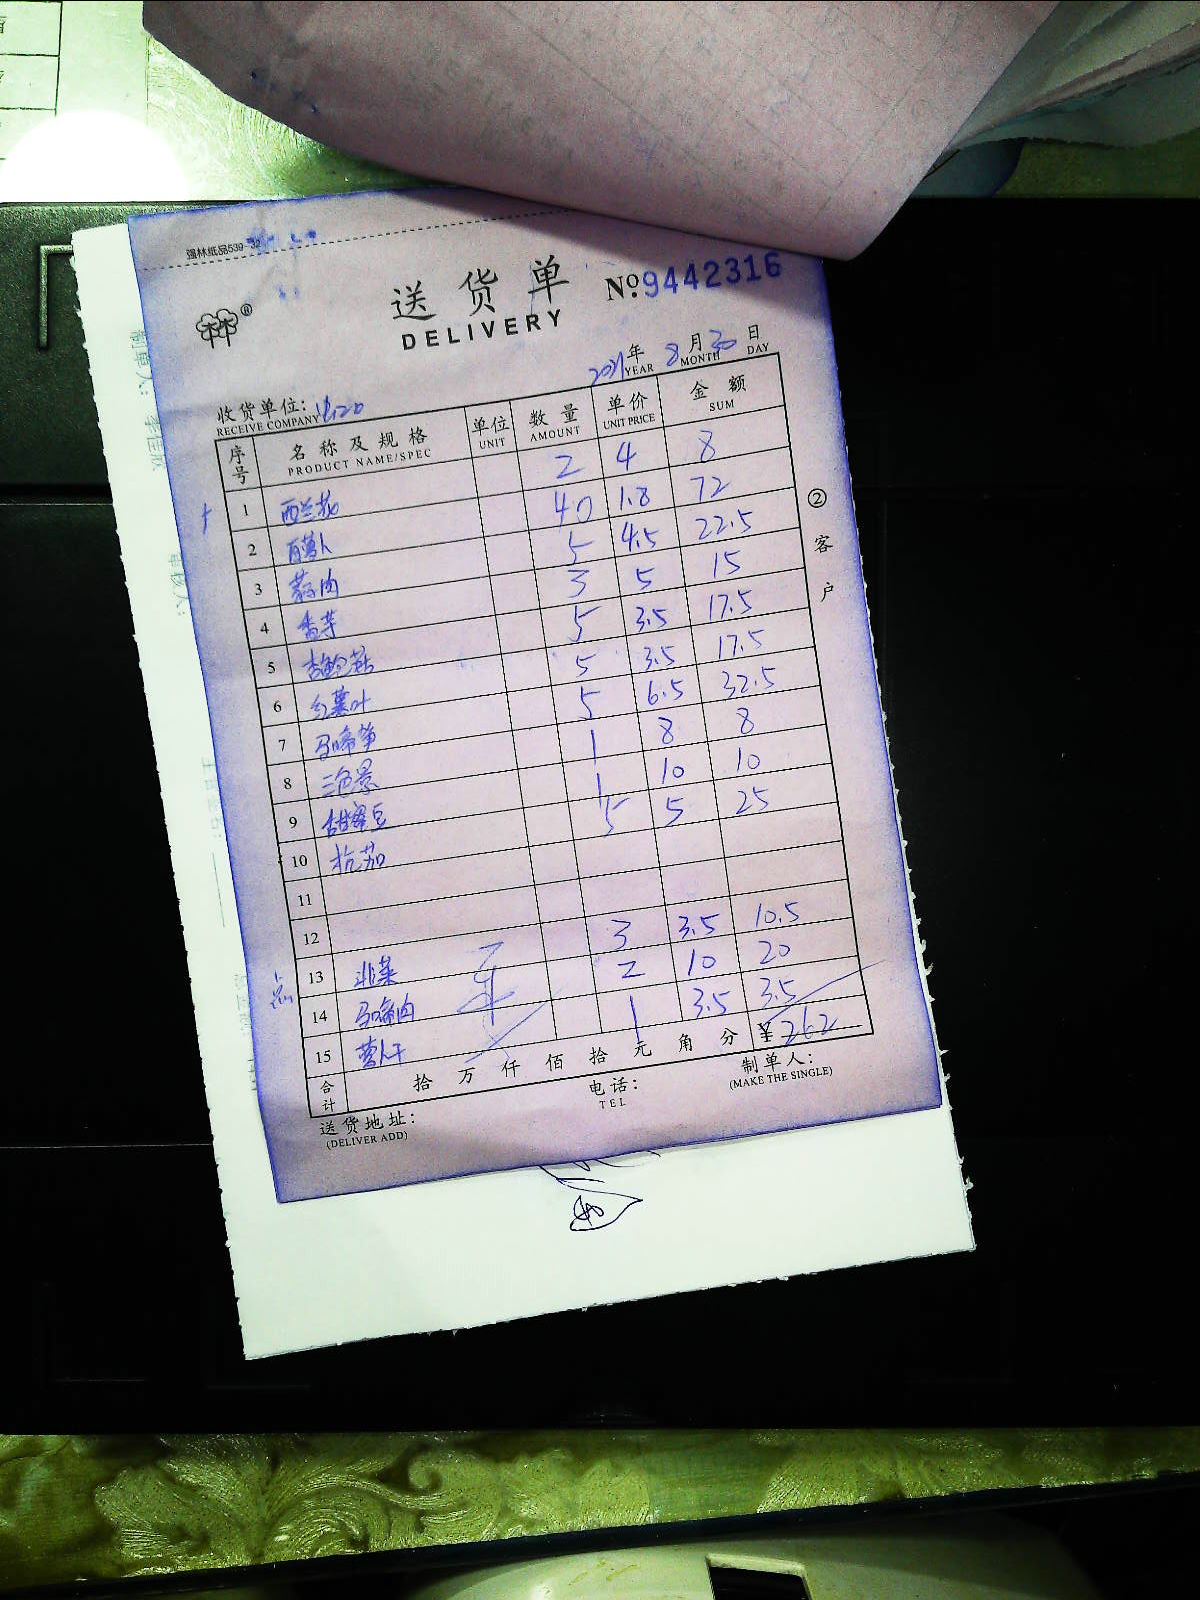 强林纸品539-32
送货单
No.9442316
DELIVERY
2021年 8月30日
YEAR MONTH DAY
收货单位:
RECEIVE COMPANY
序号 名称及规格 单位 数量 单价 金额
PRODUCT NAME/SPEC UNIT AMOUNT UNIT PRICE SUM
1 西兰花 2 4 8
2 白萝卜 40 1.8 72
3 5 4.5 22.5
4 香芋 3 5 15
5 杏鲍菇 5 3.5 17.5
6 红薯叶 5 3.5 17.5
7 马啼笋 5 6.5 32.5
8 三色景 1 8 8
9 甜蜜豆 1 10 10
10 杭茄 5 5 25
11
12
13 韭菜 3 3.5 10.5
14 马啼肉 2 10 20
15 萝卜干 1 3.5 3.5
合计 拾 万 仟 佰 拾 元 角 分 ¥262
送货地址: 电话: 制单人:
(DELIVER ADD) TEL (MAKE THE SINGLE)
②客户
制单人:
审核人: